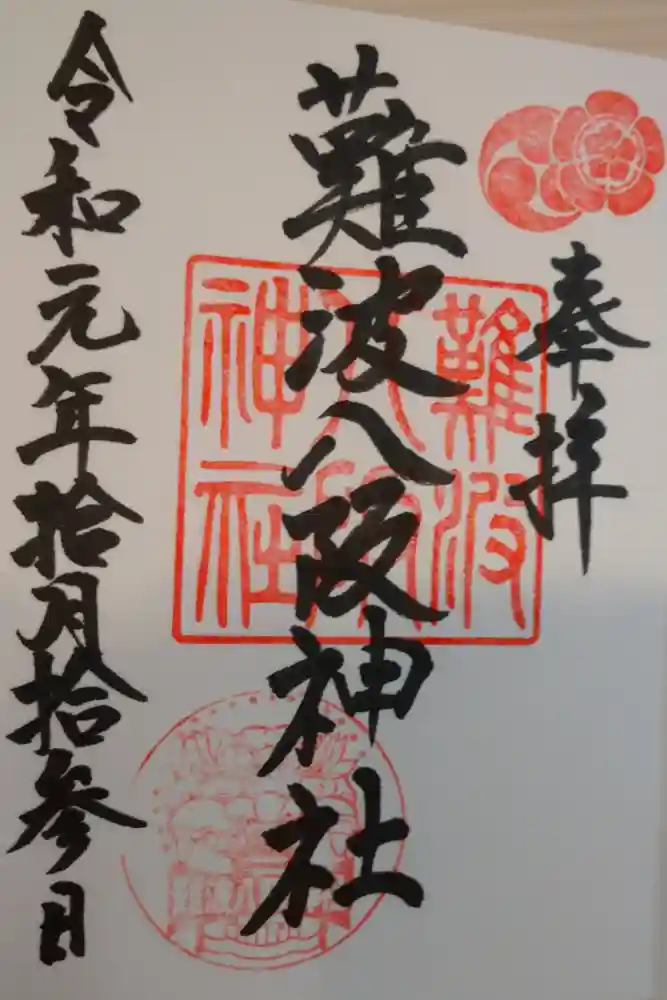 奉拝
難波八阪神社
難波八阪神社
令和元年拾月拾参日